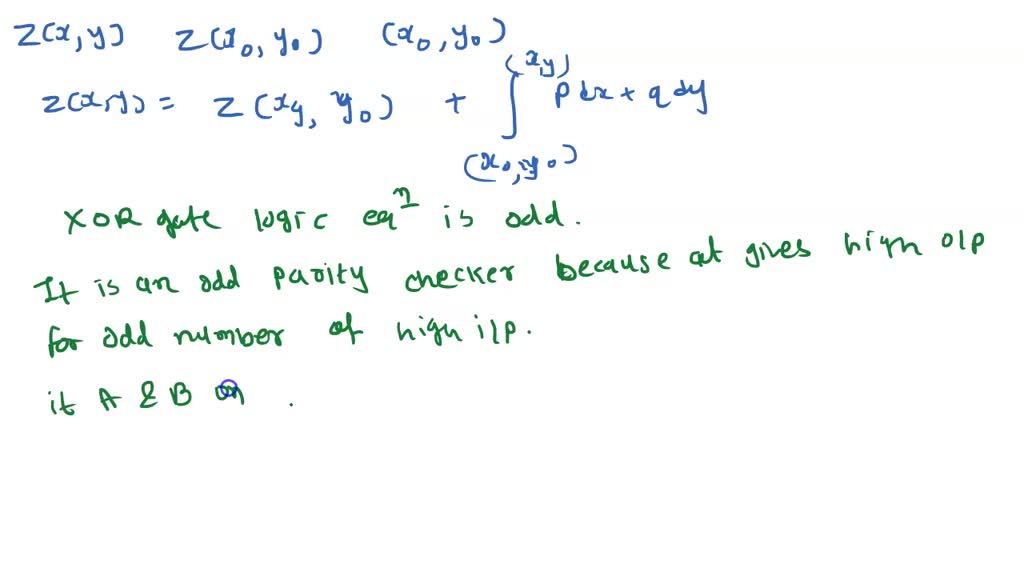 Z(x,y) Z(x₀, y₀) (x₀, y₀)
z(x,y) = Z(xy, y₀) + ∫_(x₀,y₀)^(x,y) p dx + q dy
XOR gate logic eqⁿ is odd.
It is an odd parity checker because at gives high o/p
for odd number of high i/p.
it A & B on .